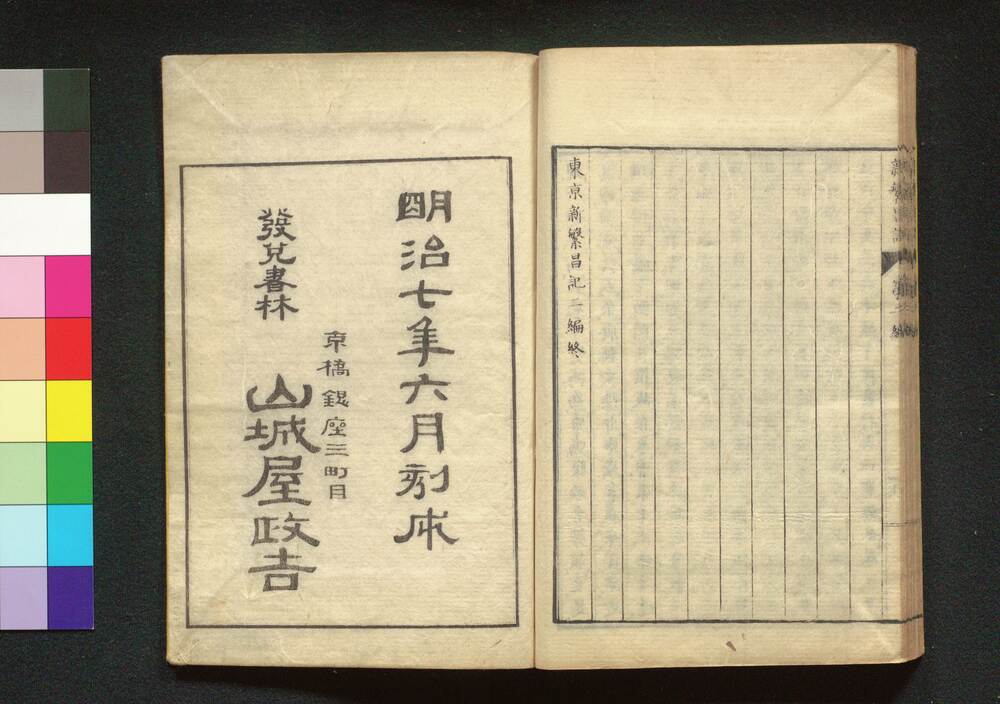 東京新繁昌記二編終
明治七年六月刻成
京橋銀座三町目
發兌書林
山城屋政吉